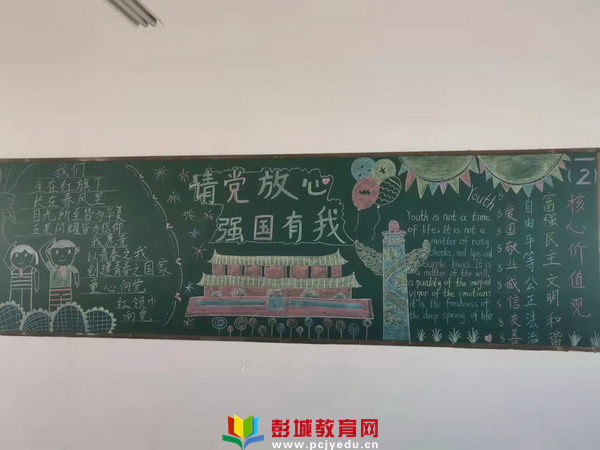 我们
生在红旗下
长在春风里
目光所至皆为华夏
五星闪耀皆为信仰
以青春之我
创建青春之国家
童心向党
红领巾
向党
请党放心
强国有我
Youth
Youth is not a time
of life; It is not a
matter of rosy
cheeks, red lips and
supple knees. It is
a matter of the will,
a quality of the
vigor of the emotions
it is the freshness of
the deep spring of life
(2)
核心价值观
富强民主文明和谐
自由平等公正法治
爱国敬业诚信友善
彭城教育网
www.pcjyedu.cn